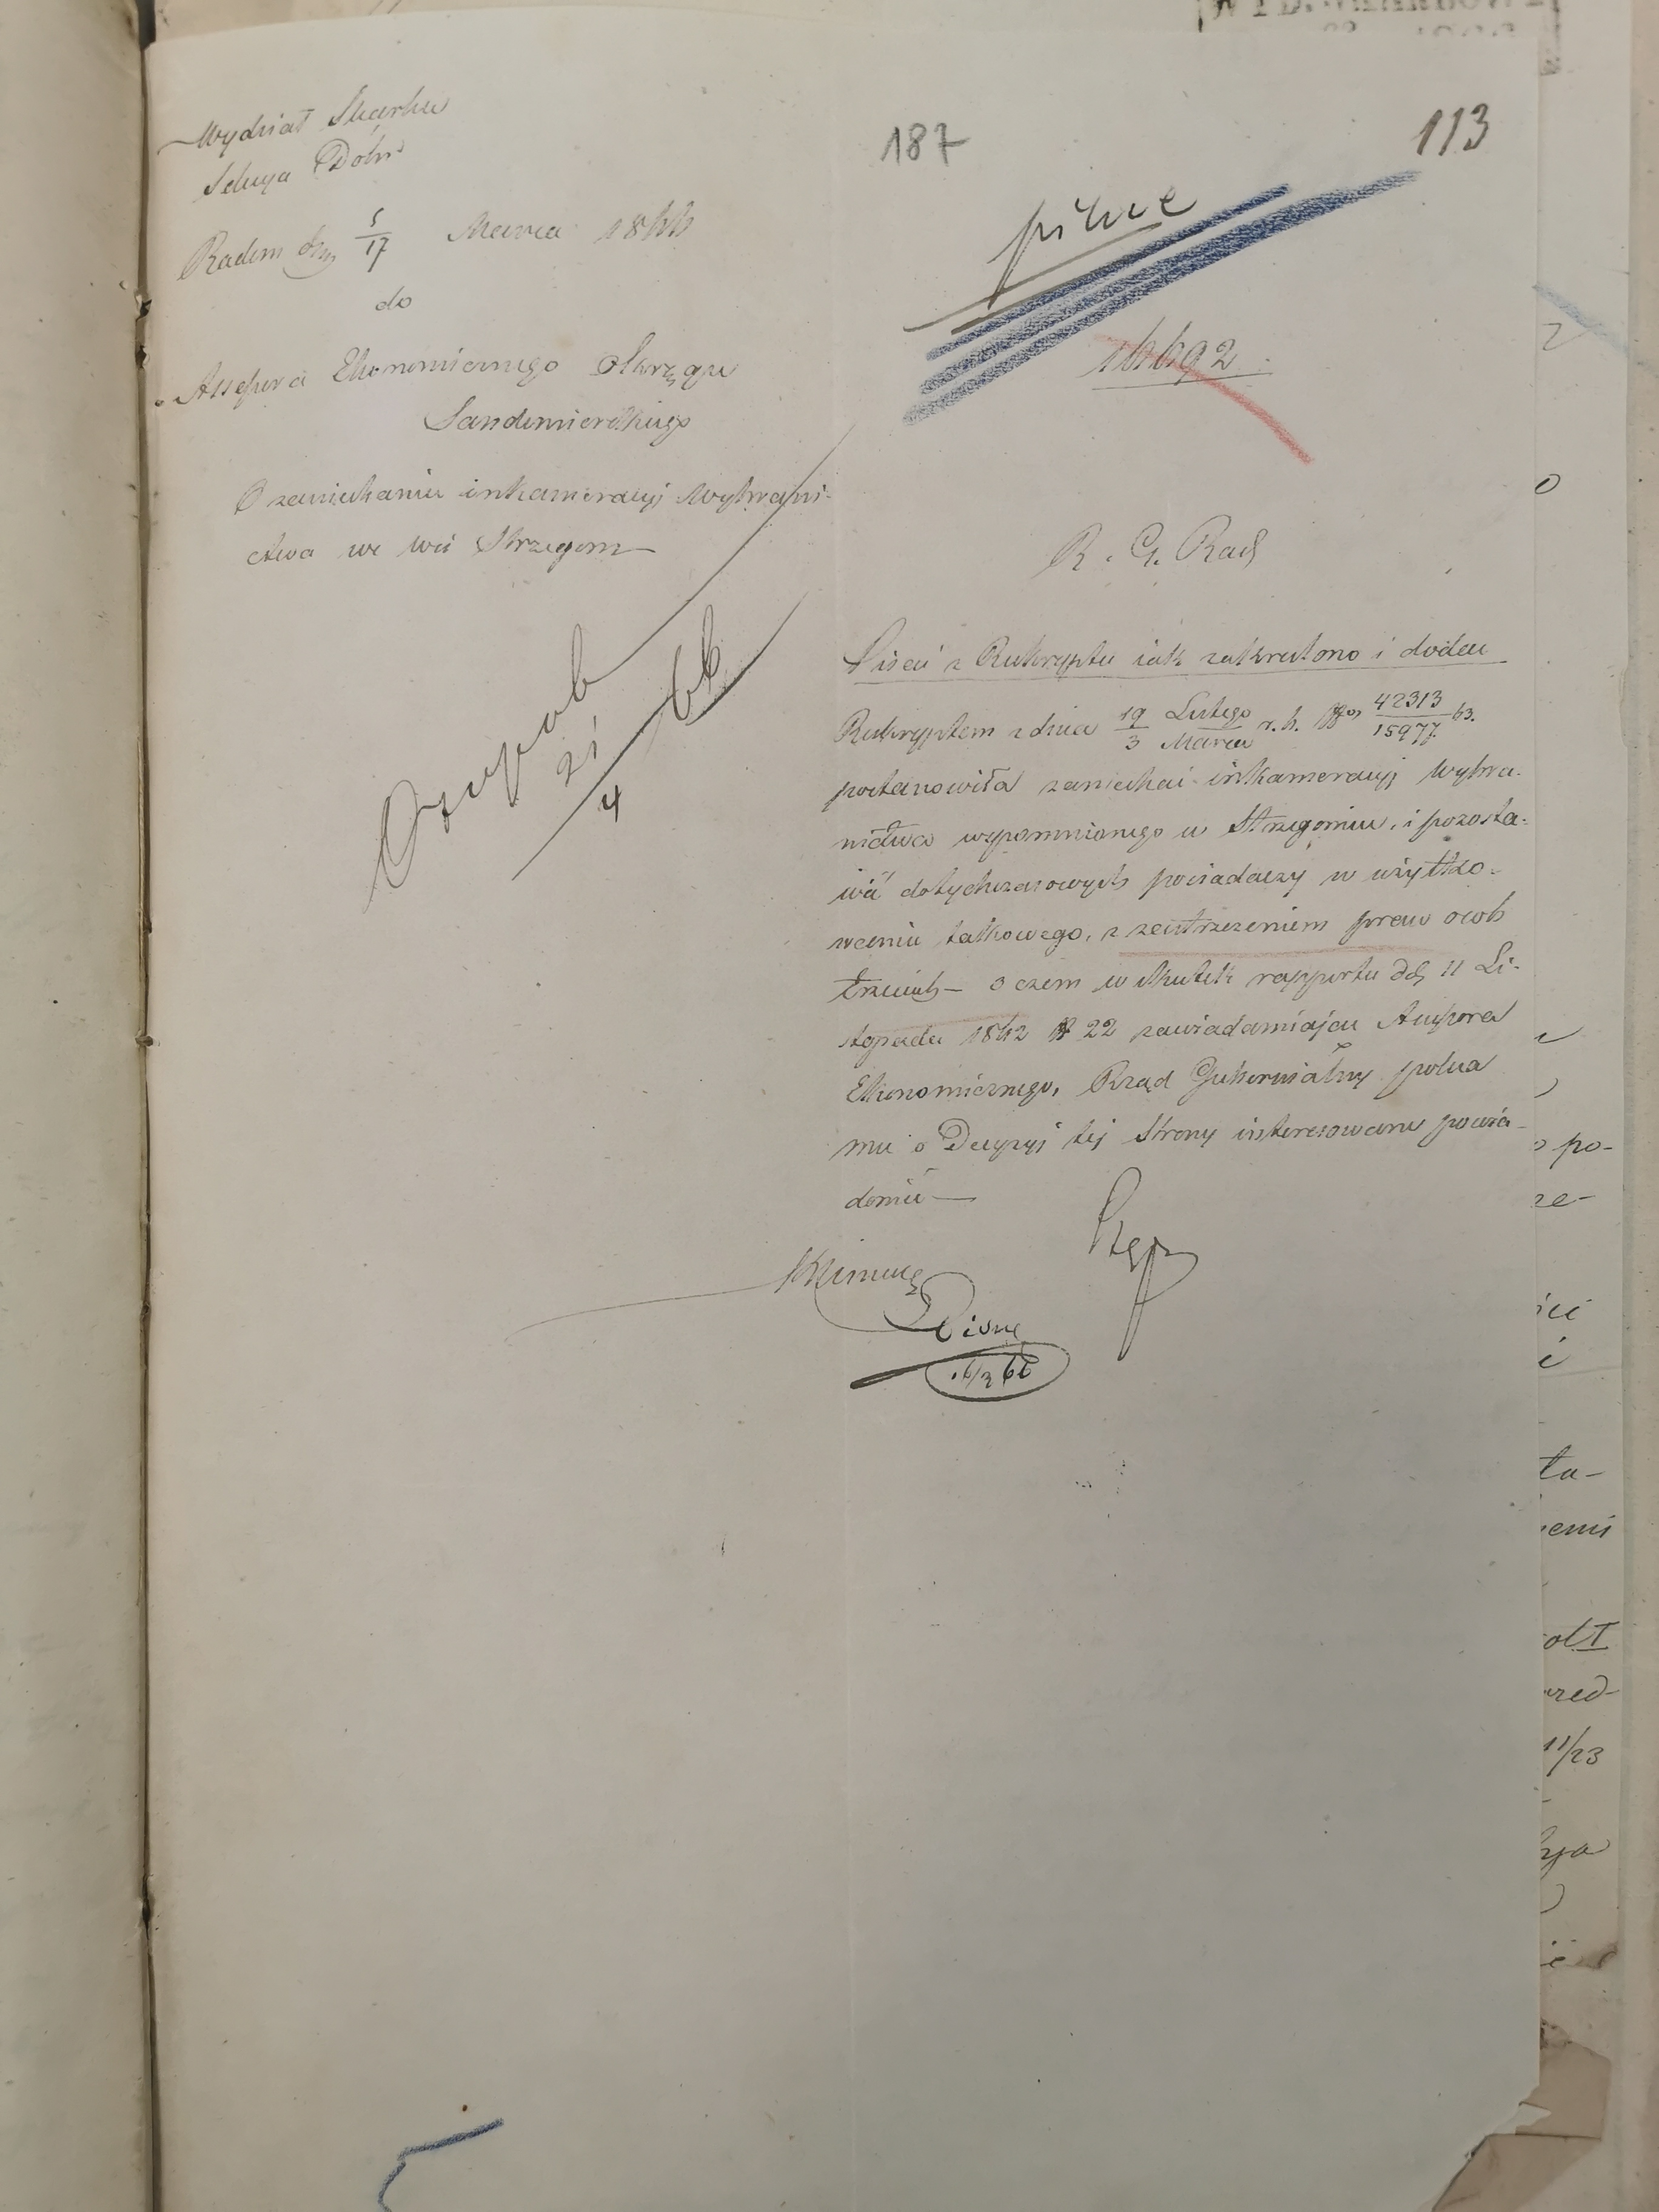 Wydział Skarbu
Sekcya Dóbr
Radom dnia 5/17 Marca 1844
do
Assessora Ekonomicznego Okręgu
Sandomierskiego
O zaniechaniu inkameracyi Wybrani-
ctwa we wsi Strzegom
21/4 44
187
113
pilne
R. G. Rad
Pisać z Reskryptu iak zakreslono i dodać
Reskryptem z dnia 19 Lutego / 3 Marca r. b. No 42313/15977 43.
postanowiła zaniechać inkameracyj wybra-
nictwa wspomnionego w Strzegomiu, i pozosta-
wić dotychczasowych posiadaczy w użytko-
waniu takowego, z zastrzeżeniem praw osób
trzecich – o czem w skutek rapportu dd 11 Li-
stopada 1842 N 22 zawiadamiając Assessora
Ekonomicznego, Rząd Gubernialny poleca
mu o Decyzyi tej Strony interesowane powia-
domić